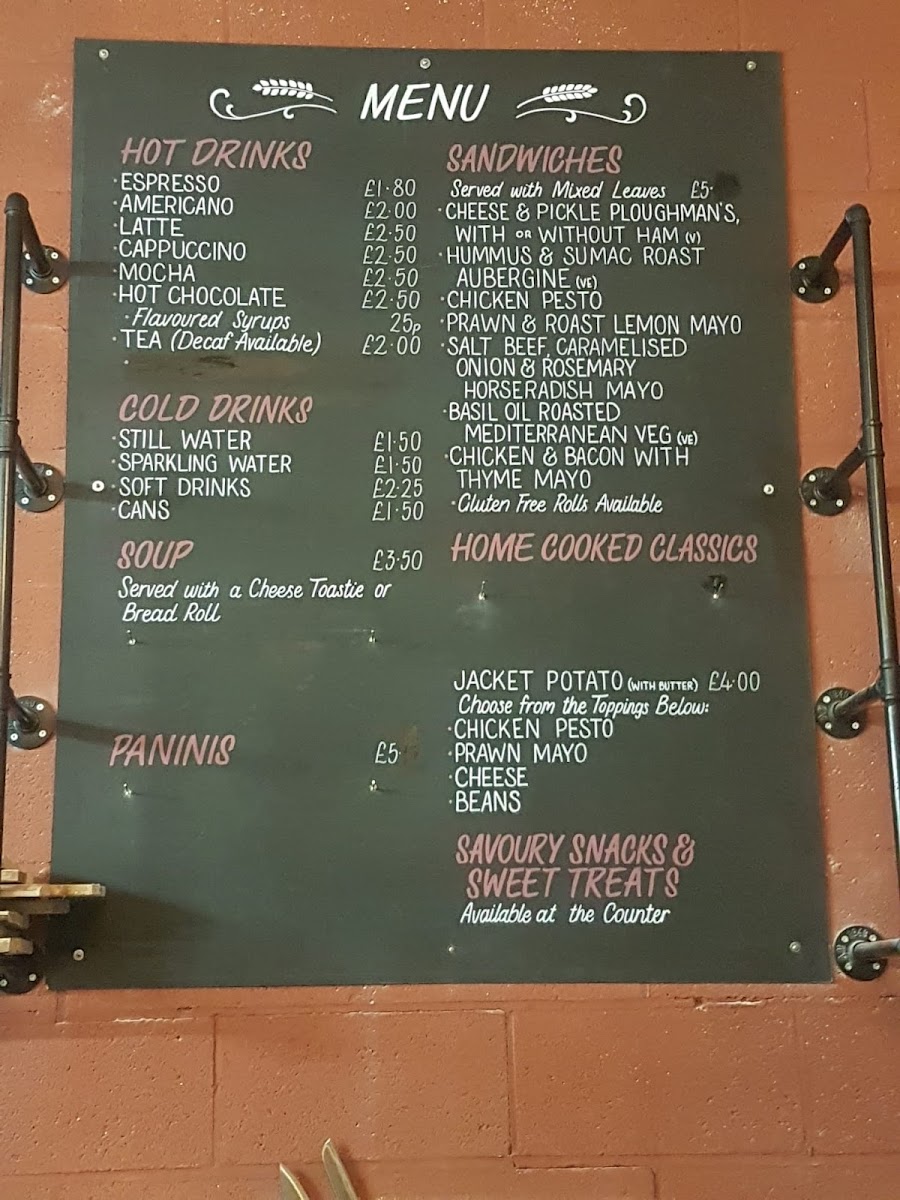 MENU
HOT DRINKS
·ESPRESSO £1·80
·AMERICANO £2·00
·LATTE £2·50
·CAPPUCCINO £2·50
·MOCHA £2·50
·HOT CHOCOLATE £2·50
·Flavoured Syrups 25p
·TEA (Decaf Available) £2·00
COLD DRINKS
·STILL WATER £1·50
·SPARKLING WATER £1·50
·SOFT DRINKS £2·25
·CANS £1·50
SOUP £3·50
Served with a Cheese Toastie or
Bread Roll
PANINIS £5·
SANDWICHES
Served with Mixed Leaves £5·
·CHEESE & PICKLE PLOUGHMAN'S,
WITH OR WITHOUT HAM (V)
·HUMMUS & SUMAC ROAST
AUBERGINE (VE)
·CHICKEN PESTO
·PRAWN & ROAST LEMON MAYO
·SALT BEEF, CARAMELISED
ONION & ROSEMARY
HORSERADISH MAYO
·BASIL OIL ROASTED
MEDITERRANEAN VEG (VE)
·CHICKEN & BACON WITH
THYME MAYO
·Gluten Free Rolls Available
HOME COOKED CLASSICS
JACKET POTATO (WITH BUTTER) £4·00
Choose from the Toppings Below:
·CHICKEN PESTO
·PRAWN MAYO
·CHEESE
·BEANS
SAVOURY SNACKS &
SWEET TREATS
Available at the Counter